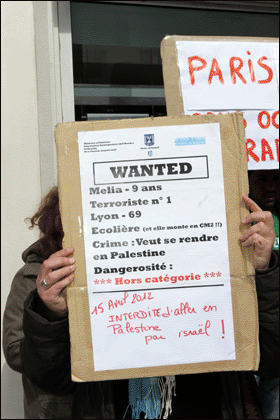 PARIS
WANTED
Melia - 9 ans
Terroriste n° 1
Lyon - 69
Ecolière (et elle monte en CM2 !!)
Crime : Veut se rendre
en Palestine
Dangerosité :
*** Hors catégorie ***
15 Avril 2012
INTERDITE d'aller en
Palestine
par israël !